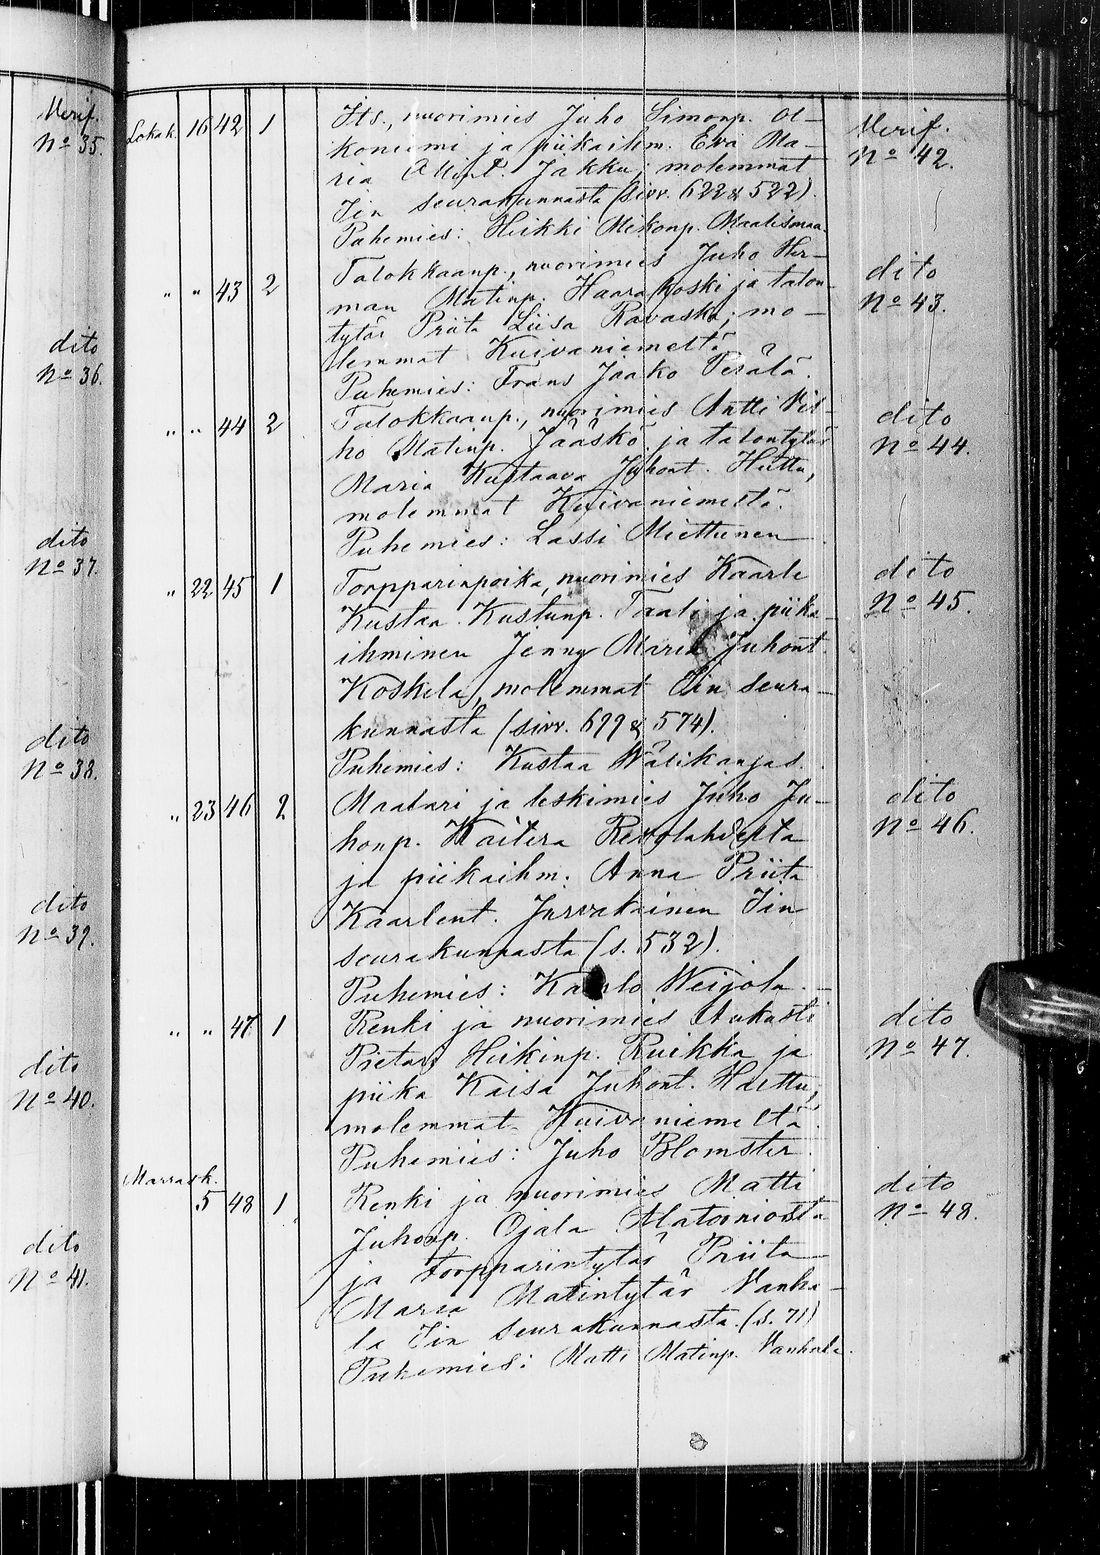 Verif.
No 35.
dito
No 36.
dito
No 37.
dito
No 38.
dito
No 39.
dito
No 40.
dito
No 41.
Lokak. 16 42 1 Its., nuorimies Juho Simonp. Al-
koniemi ja piikaihm. Eva Ma-
ria Jakku, molemmat
Iin seurakunnasta (sivv. 622 & 522).
Puhemies: Heikki Mikonp. Maalismaa.
Verif.
No 42.
" " 43 2 Talokkaanp., nuorimies Juho Her-
man Matinp. Haarakoski ja talon-
tytär Priita Liisa Ravaska; mo-
lemmat Kuivaniemeltä
Puhemies: Frans Jaako Perälä.
dito
No 43.
" " 44 2 Talokkaanp., nuorimies Antti Vil-
ho Matinp. Jääskö ja talontytär
Maria Kustaava Juhont. Huttu,
molemmat Kuivaniemeltä.
Puhemies: Lassi Miettunen
dito
No 44.
" 22 45 1 Torpparinpoika, nuorimies Kaarle
Kustaa Kustunp. Taali ja piika-
ihminen Jenny Maria Juhont.
Koskela, molemmat Iin seura-
kunnasta (sivv. 699 & 574).
Puhemies: Kustaa Wälikangas.
dito
No 45.
" 23 46 2 Maalari ja leskimies Juho Ju-
honp. Kaitera Revolahdelta
ja piikaihm. Anna Priita
Kaarlent. Jurvakainen Iin
seurakunnasta (s. 532).
Puhemies: Kaarlo Weijola.
dito
No 46.
" " 47 1 Renki ja nuorimies Aukusti
Pietari Heikinp. Ruikka ja
piika Kaisa Juhont. Huttu,
molemmat Kuivaniemeltä.
Puhemies: Juho Blomster.
dito
No 47.
Marrask.
5 48 1 Renki ja nuorimies Matti
Juhonp. Ojala Alatorniosta
ja Torpparintytär Priita
Maria Matintytär Vanha-
la Iin seurakunnasta. (s. 71)
Puhemies: Matti Matinp. Vanhala.
dito
No 48.